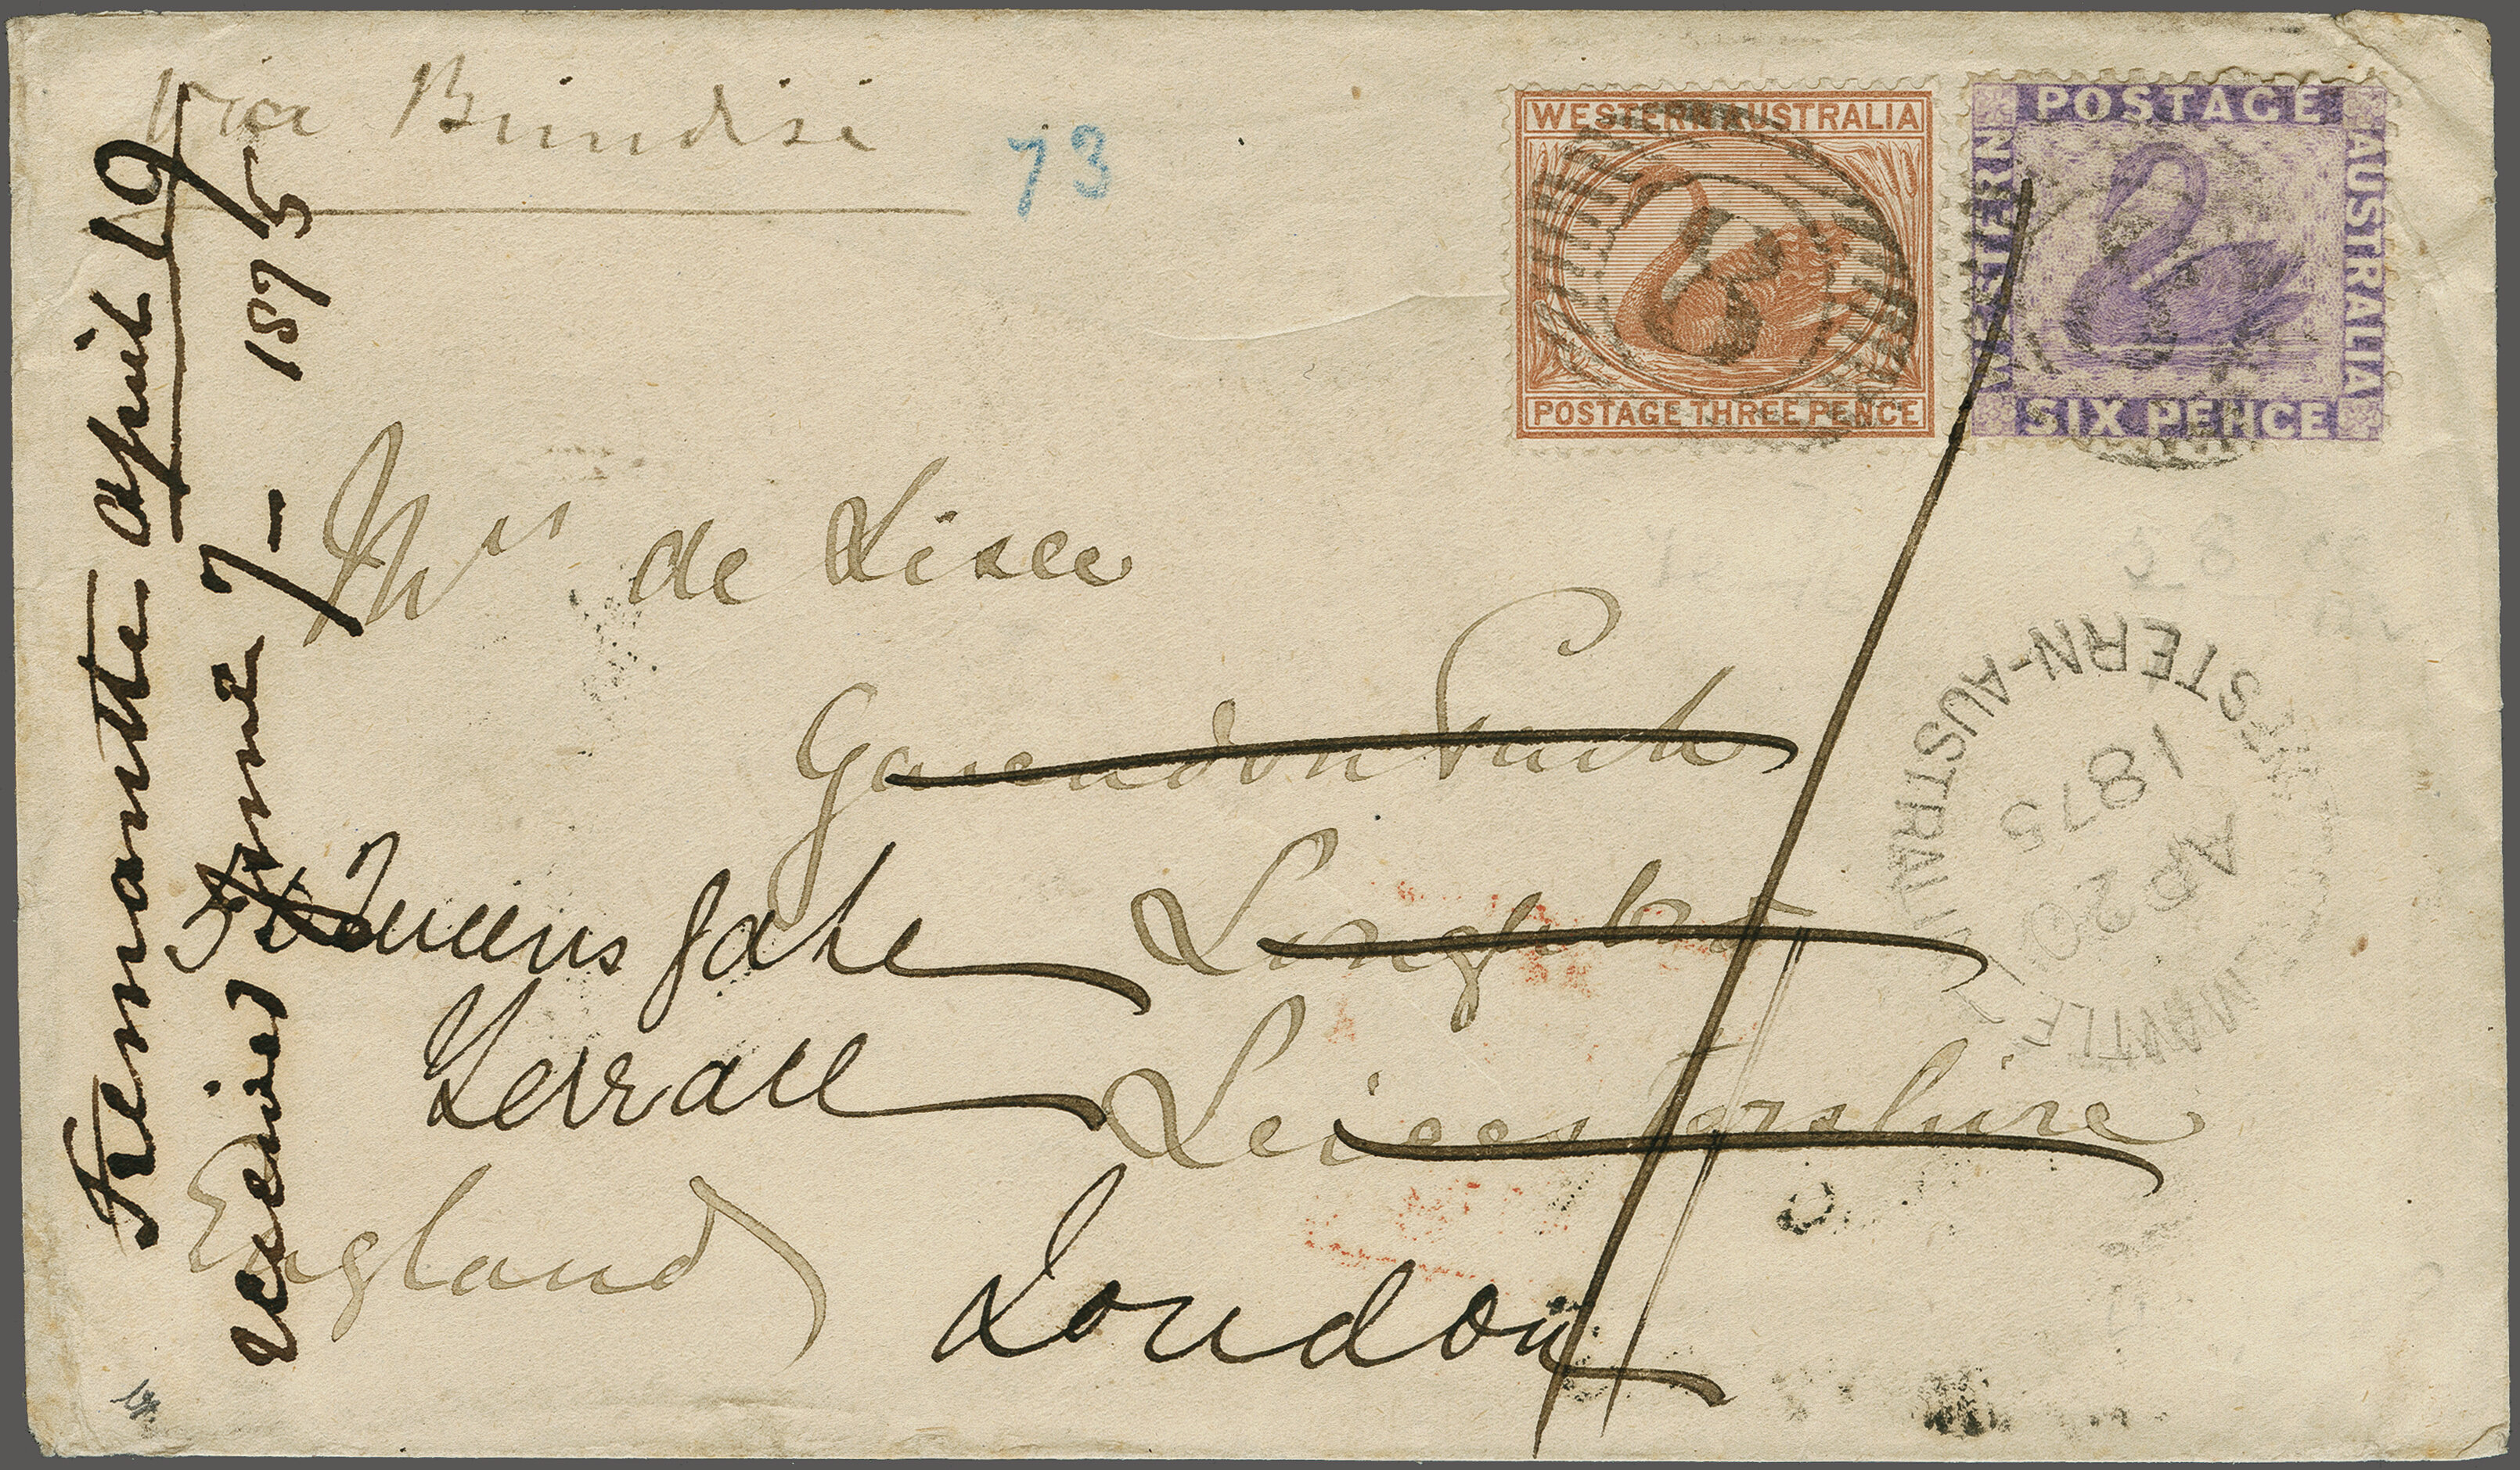 via Brindisi
73
WESTERN AUSTRALIA
POSTAGE THREE PENCE
POSTAGE
WESTERN
AUSTRALIA
SIX PENCE
Fremantle April 19
received June 7 – 1875
Mrs de Lisle
Garendon Park
Queens gate
Terrace
Leicestershire
England
London
STERN-AUSTRALIA
1875
AP 20